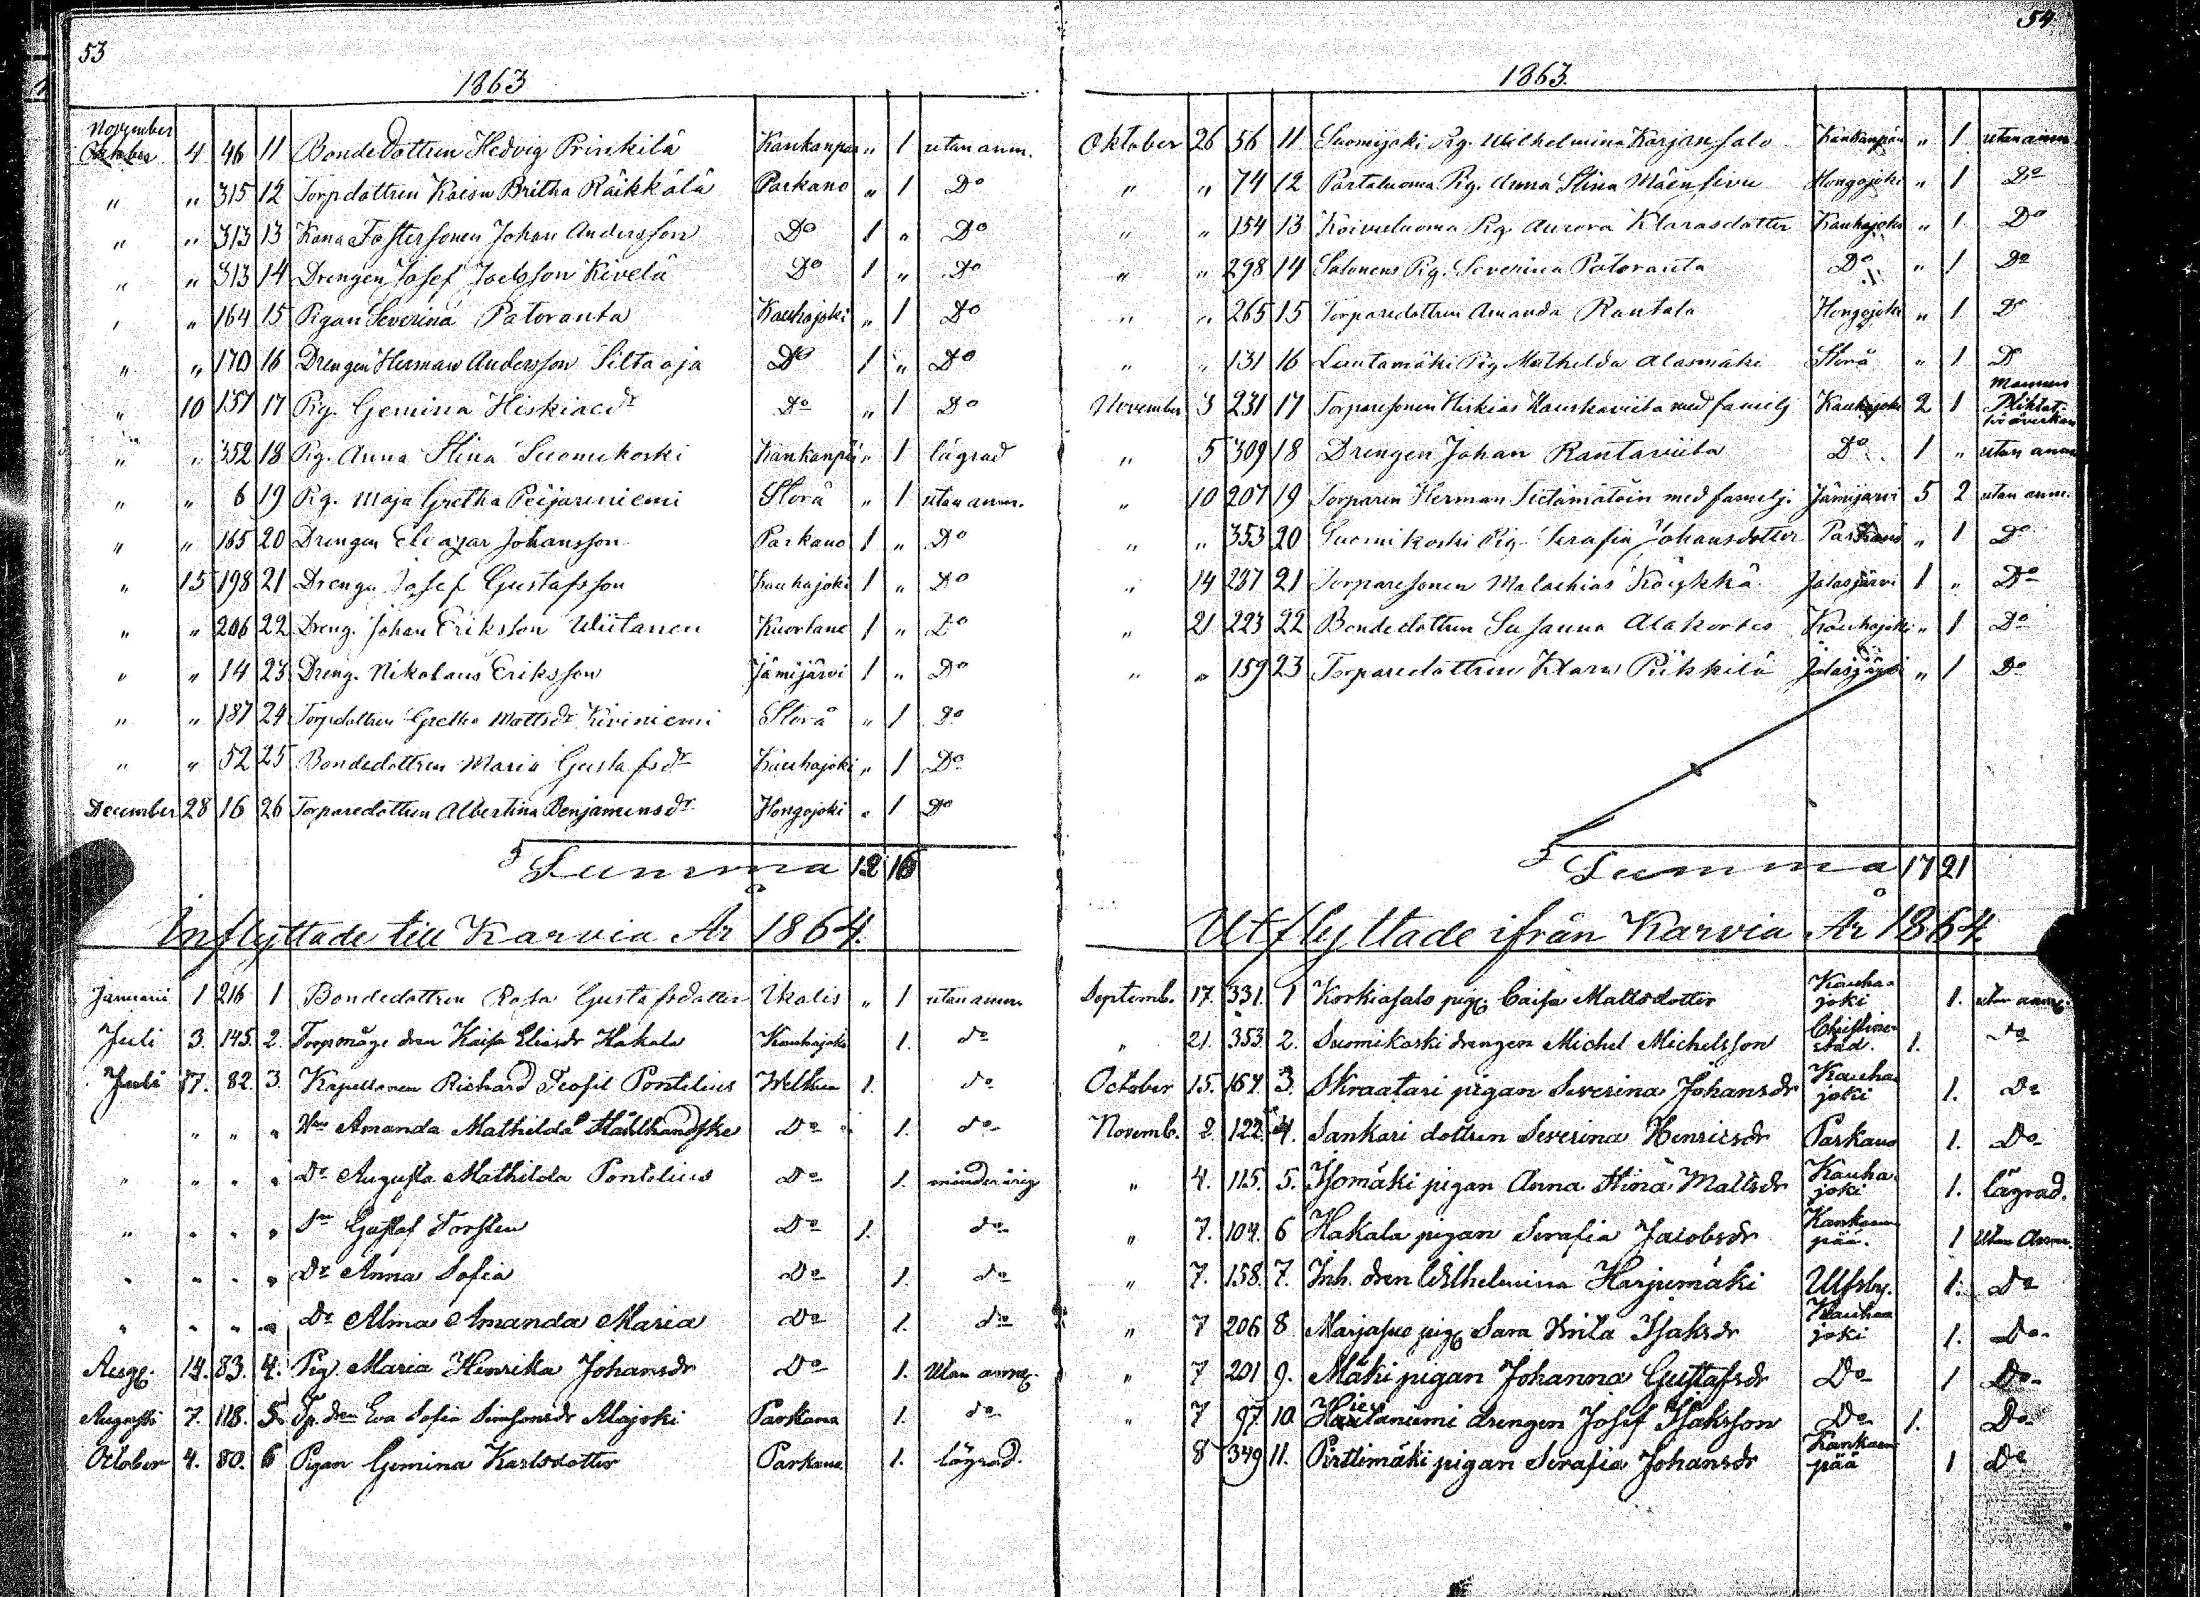 53
1863
November
October 4 46 11 Bondedottren Hedvig Prinkilä Kankanpää " 1 utan anm.
" " 315 12 Torpdottren Kaisa Britha Räikkälä Parkano " 1 Do
" " 313 13 Kana Fostersonen Johan Andersson Do 1 " Do
" " 313 14 Drengen Josef Joelsson Kivelä Do 1 " Do
" " 164 15 Pigan Severina Patoranta Kauhajoki " 1 Do
" " 170 16 Drengen Herman Andersson Siltaoja Do 1 " Do
" 10 157 17 Pig. Gemina Hiskiaedr Do " 1 Do
" " 352 18 Pig. Anna Stina Suomikoski Kankanpää " 1 lägrad
" " 6 19 Pig. Maja Gretha Peijariniemi Storå " 1 utan anm.
" " 165 20 Drengen Eleazar Johansson Parkano 1 " Do
" 15 198 21 Dreng. Josef Gustafsson Kauhajoki 1 " Do
" " 206 22 Dreng. Johan Eriksson Wiitanen Kuortane 1 " Do
" " 14 23 Dreng. Nikolaus Eriksson Jämijärvi 1 " Do
" " 187 24 Torpdottren Gretha Mattsdr Kiviniemi Storå " 1 Do
" " 52 25 Bondedottren Maria Gustafsdr Kauhajoki " 1 Do
December 28 16 26 Torparedottren Albertina Benjaminsdr Hongojoki " 1 Do
Summa 12 16
Inflyttade till Karvia År 1864.
Januari 1 216 1 Bondedottren Rosa Gustafsdotter Ikalis " 1 utan anm.
Juli 3. 145. 2. Torpmåge dren Kaisa Eliasdr Hakala Kauhajoki 1. do
Juli 17. 82. 3. Kapellanen Richard Teofil Pontelius 1. do
" " " Hru Amanda Mathilda Stålhandske Do 1. do
" " " " Dr Augusta Mathilda Pontelius Do 1. minderårig
" " " " Sn Gustaf Torsten Do 1. do
" " " " Dr Anna Sofia Do 1. do
" " " " Dr Alma Amanda Maria Do 1. do
Aug. 14. 83. 4. Pig. Maria Henrika Johansdr Do 1. Utan anm.
Augusti 7. 118. 5. Tp. dren Eva Sofia Simsonsdr Alajoki Parkano 1. do
October 4. 80. 6 Pigan Gemina Karlsdotter Parkano 1. lägrad.
54
1863.
Oktober 26 56 11 Suomijoki Pig. Wilhelmina Karjansalo Kankanpää " 1 utan anm
" " 74 12 Partaluoma Pig. Anna Stina Mäensivu Hongojoki " 1 Do
" " 154 13 Koivuluoma Pig. Aurora Klarasdotter Kauhajoki " 1 Do
" " 298 14 Salonens Pig. Severina Patoranta Do " 1 Do
" " 265 15 Torparedottren Amanda Rantala Hongojoki " 1 Do
" " 131 16 Luutamäki Pig Mathilda Alasmäki Storå " 1 D
November 3 231 17 Torparesonen Hiskias Hauskaviita med familj Kauhajoki 2 1 Mannen
" 5 309 18 Drengen Johan Rantaviita Do 1 " utan anm
" 10 207 19 Torparen Herman Sietämätöin med familj. Jämijärvi 5 2 utan anm.
" " 353 20 Suomikoski Pig. Serafia Johansdotter Parkano " 1 Do
" 14 237 21 Torparesonen Malachias Köykkä Jalasjärvi 1 " Do
" 21 223 22 Bondedottren Susanna Alakortes Kauhajoki " 1 Do
" " 159 23 Torparedottren Klara Piikkilä Jalasjärvi " 1 Do
Summa 17 21
Utflyttade ifrån Karvia År 1864.
Septemb. 17. 331. 1 Korkiasalo pig. Caisa Mattsdotter Kauhajoki 1. utan anm.
" 21. 353 2. Suomikoski drengen Michel Michelsson Christinestad. 1. do
October 15. 167. 3. Skraatari pigan Severina Johansdr Kauhajoki 1. Do
Novemb. 2 122 4. Sankari dottren Severina Henricsdr Parkano 1. Do
" 4. 115. 5. Isomäki pigan Anna Stina Mattsdr Kauhajoki 1. lägrad.
" 7. 104. 6 Hakala pigan Serafia Jacobsdr Kankaanpää. 1 Utan Anm.
" 7. 158. 7. Inh. dren Wilhelmina Harjumäki Ulfsby. 1. Do
" 7 206 8 Marjasuo pig. Sara Ulrika Isaksdr Kauhajoki 1. Do
" 7 201 9. Mäki pigan Johanna Gustafsdr Do 1 Do
" 7 97 10 Hietaniemi drengen Josef Isaksson Do 1. Do
8 349 11. Pirttimäki pigan Serafia Johansdr Kankaanpää 1 Do